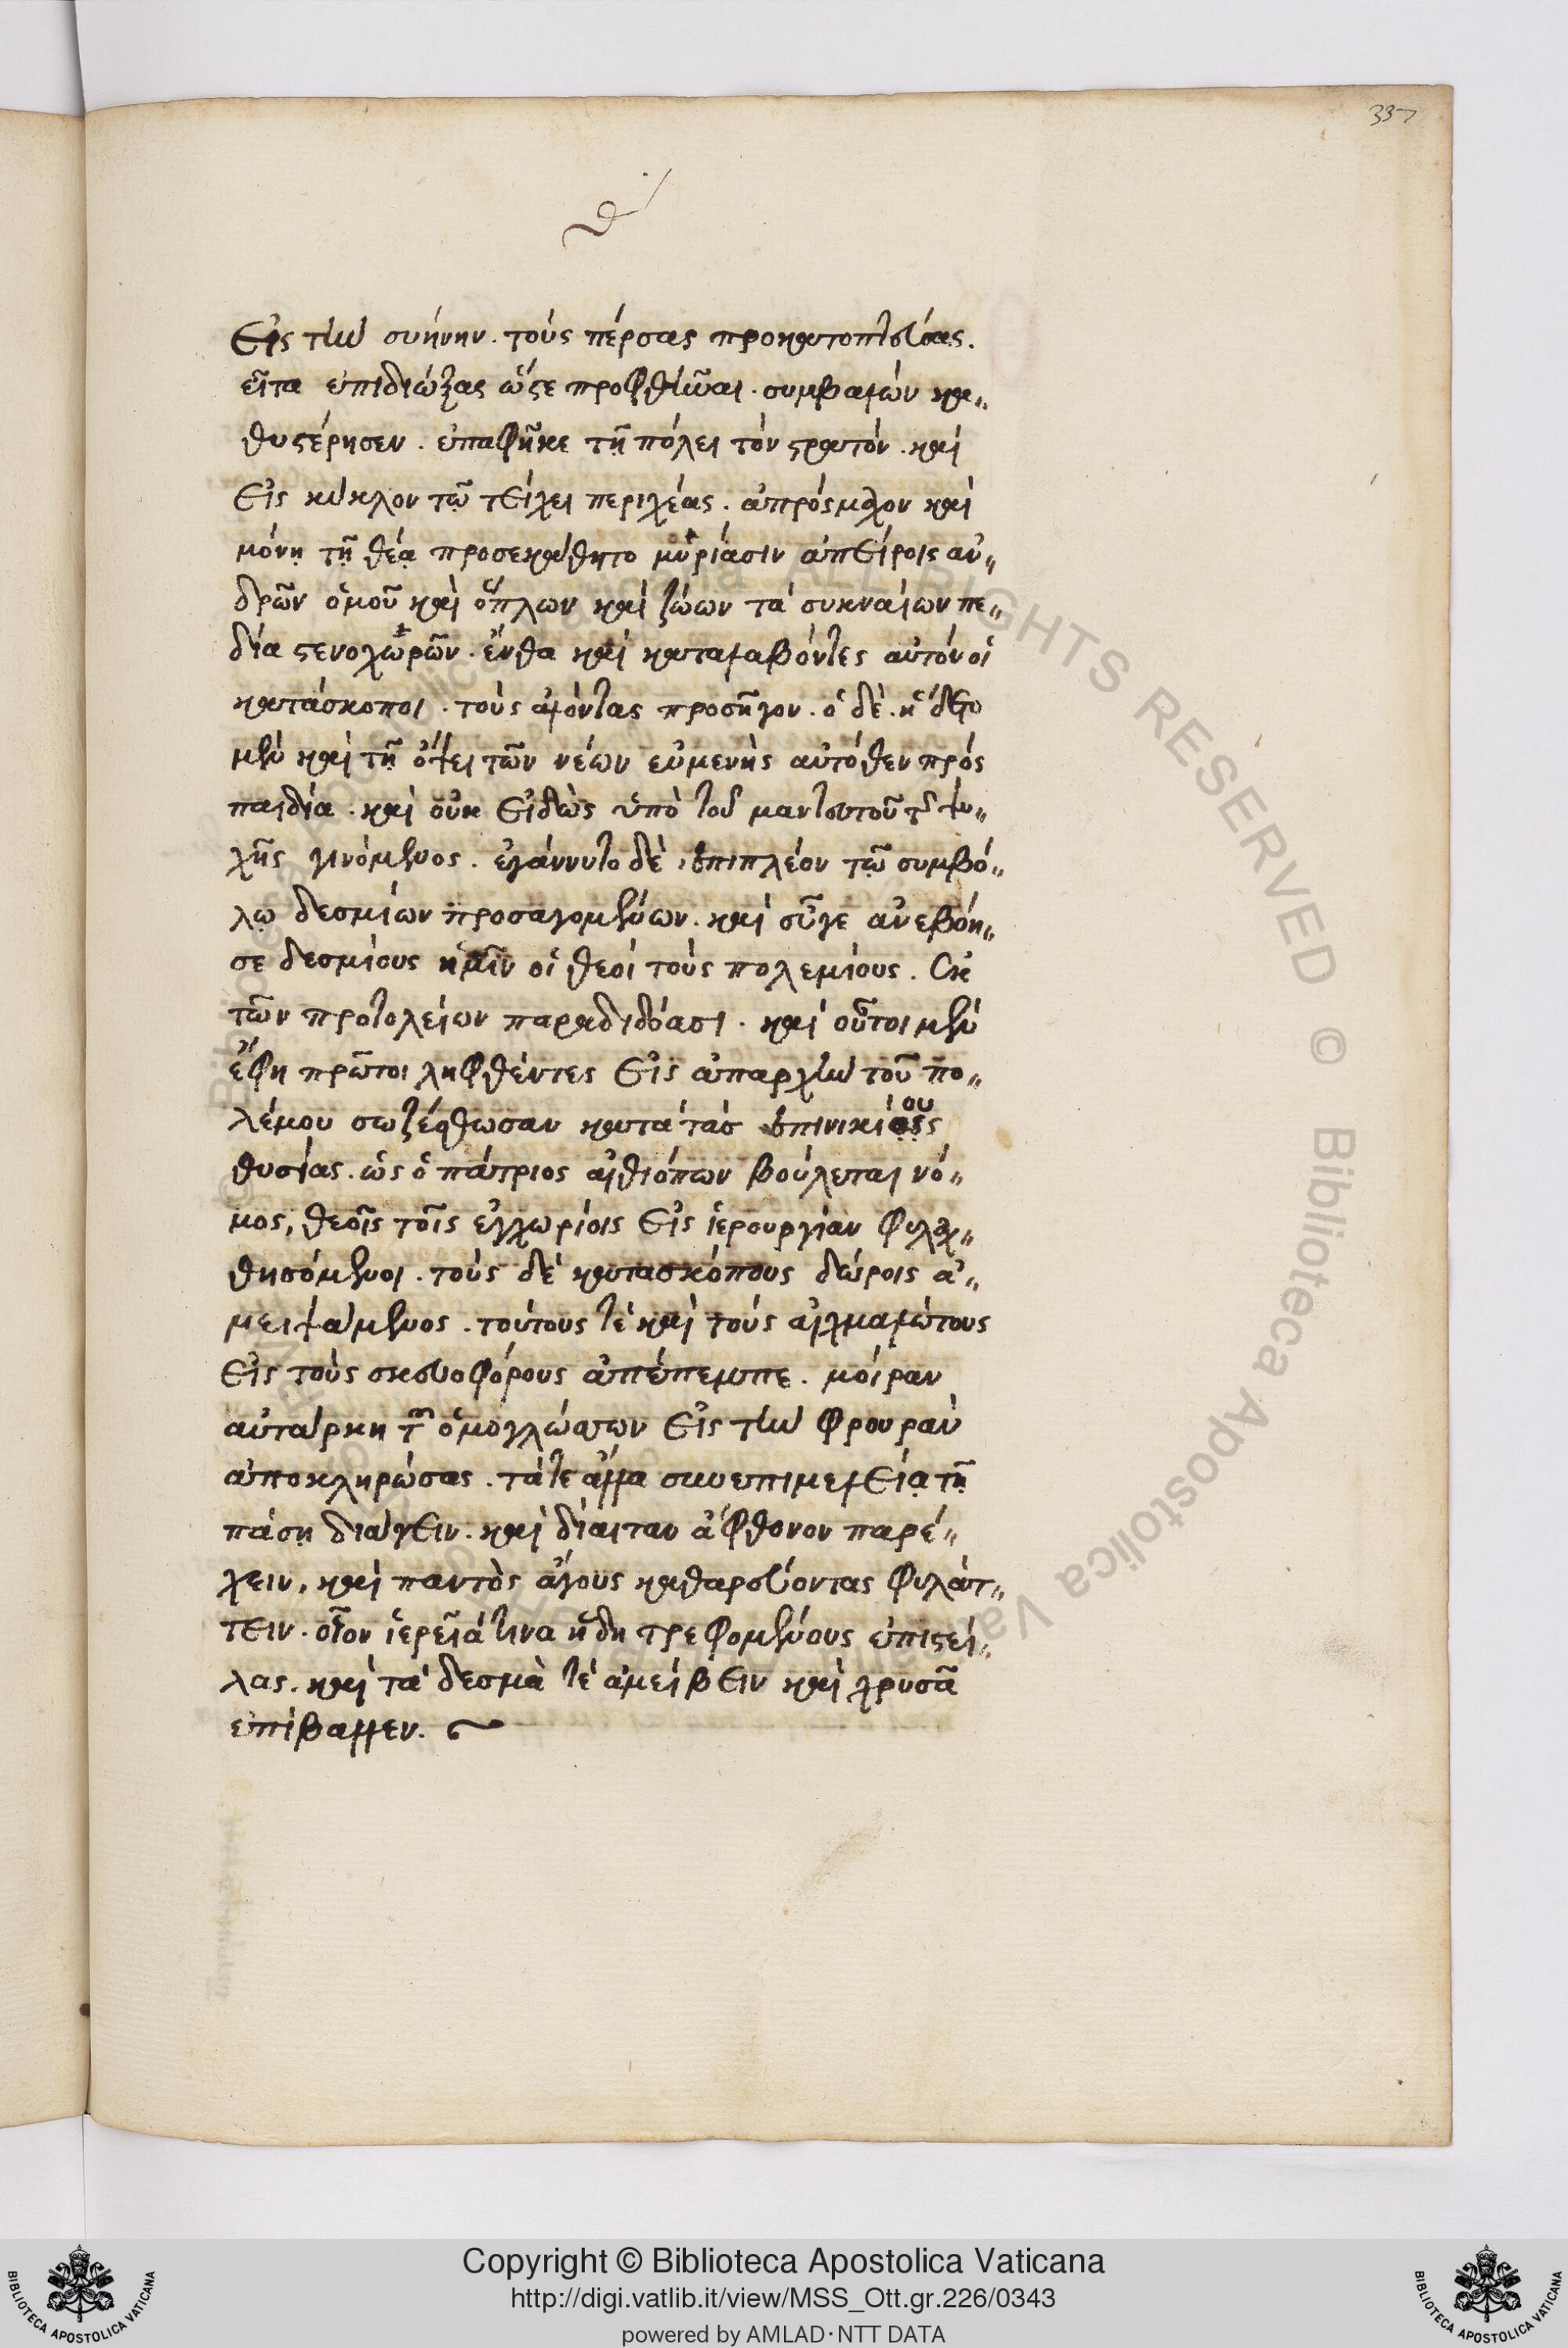 337
θʹ
Εἰς τὴν συήνην. τοὺς πέρσας προκατοπτεύσας.
εἶτα ἐπιδιώξας ὥστε προφθῆναι. συμβαλὼν κα„
θυστέρησεν. ἐπαφῆκε τῇ πόλει τὸν στρατόν. καὶ
εἰς κύκλον τῷ τείχει περιχέας. ἀπρόσμαχον καὶ
μόνῃ τῇ θέᾳ προσεκάθητο μυριάσιν ἀπείροις ἀν„
δρῶν ὁμοῦ καὶ ὅπλων καὶ ζώων τὰ συκναίων πε„
δία στενοχωρῶν. ἔνθα καὶ καταλαβόντες αὐτὸν οἱ
κατάσκοποι. τοὺς ἁλόντας προσῆγον. ὁ δὲ. ἥδετο
μὲν καὶ τῇ ὄψει τῶν νέων εὐμενὴς αὐτόθεν πρὸς
παιδία. καὶ οὐκ εἰδὼς ὑπὸ τοῦ μαντευτοῦ τῆς ψυ„
χῆς γινόμενος. ἐγάννυτο δὲ, ἐπιπλέον τῷ συμβό„
λῳ δεσμίων προσαγομένων. καὶ εὖγε ἀνεβόη„
σε δεσμίους ἡμῖν οἱ θεοὶ τοὺς πολεμίους. ἐκ
τῶν προτολείων παραδιδόασι. καὶ οὗτοι μὲν
ἔφη πρῶτοι ληφθέντες εἰς ἀπαρχὴν τοῦ πο„
λέμου σωζέσθωσαν κατὰ τὰσ ἐπινικίους
θυσίας. ὡς ὁ πάτριος αἰθιόπων βούλεται νό„
μος, θεοῖς τοῖς ἐγχωρίοις εἰς ἱερουργίαν φυλαχ„
θησόμενοι. τοὺς δὲ κατασκόπους δώροις ἀ„
μειψάμενος. τούτους τὲ καὶ τοὺς αἰχμαλώτους
εἰς τοὺς σκευοφόρους ἀπέπεμπε. μοίραν
αὐτάρκη τῶν ὁμογλώττων εἰς τὴν φρουρὰν
ἀποκληρώσας. τά τε ἄλλα συνεπιμελείᾳ τῇ
πάσῃ διάγειν. καὶ δίαιταν ἄφθονον παρέ„
χειν, καὶ παντὸς ἄγους καθαρεύοντας φυλάτ„
τειν. οἷον ἱερεῖά τινα ἤδη τρεφομένους ἐπιστεί„
λας. καὶ τὰ δεσμὰ τὲ ἀμείβειν καὶ χρυσᾶ
ἐπίβαλλεν.
© Biblioteca Apostolica Vaticana ALL RIGHTS RESERVED © Biblioteca Apostolica Vaticana
BIBLIOTECA APOSTOLICA VATICANA
Copyright © Biblioteca Apostolica Vaticana
http://digi.vatlib.it/view/MSS_Ott.gr.226/0343
powered by AMLAD·NTT DATA
BIBLIOTECA APOSTOLICA VATICANA